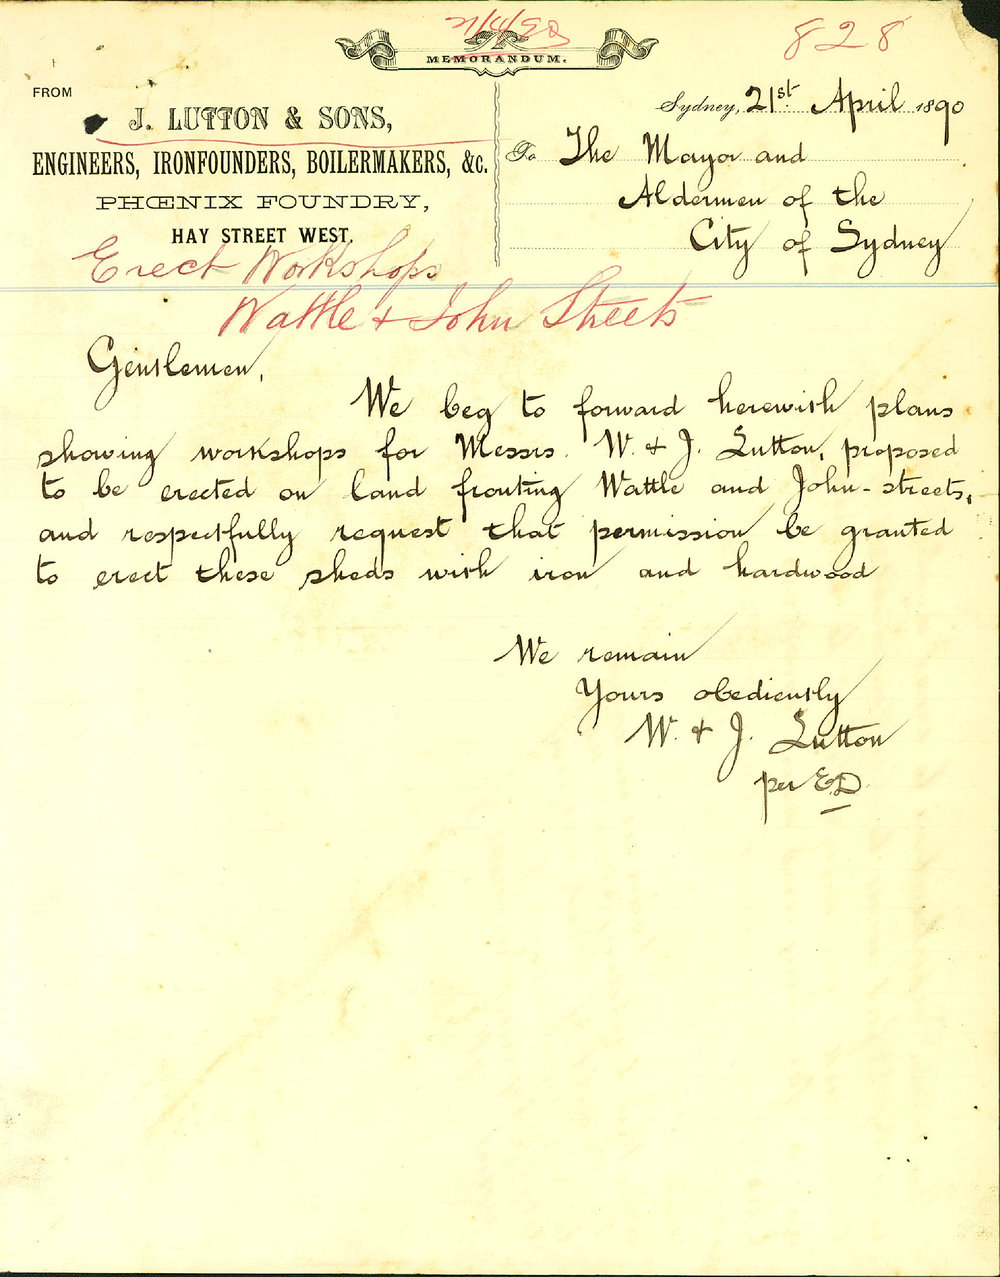 21/4/90
828
MEMORANDUM.
FROM
J. LUTTON & SONS,
ENGINEERS, IRONFOUNDERS, BOILERMAKERS, &c.
PHŒNIX FOUNDRY,
HAY STREET WEST.
Sydney, 21st. April 1890
To The Mayor and
Aldermen of the
City of Sydney
Erect Workshops
Wattle & John Streets
Gentlemen,
We beg to forward herewith plans
showing workshops for Messrs. W. & J. Lutton, proposed
to be erected on land fronting Wattle and John-streets,
and respectfully request that permission be granted
to erect these sheds with iron and hardwood
We remain
Yours obediently
W. & J. Lutton
per E.D.